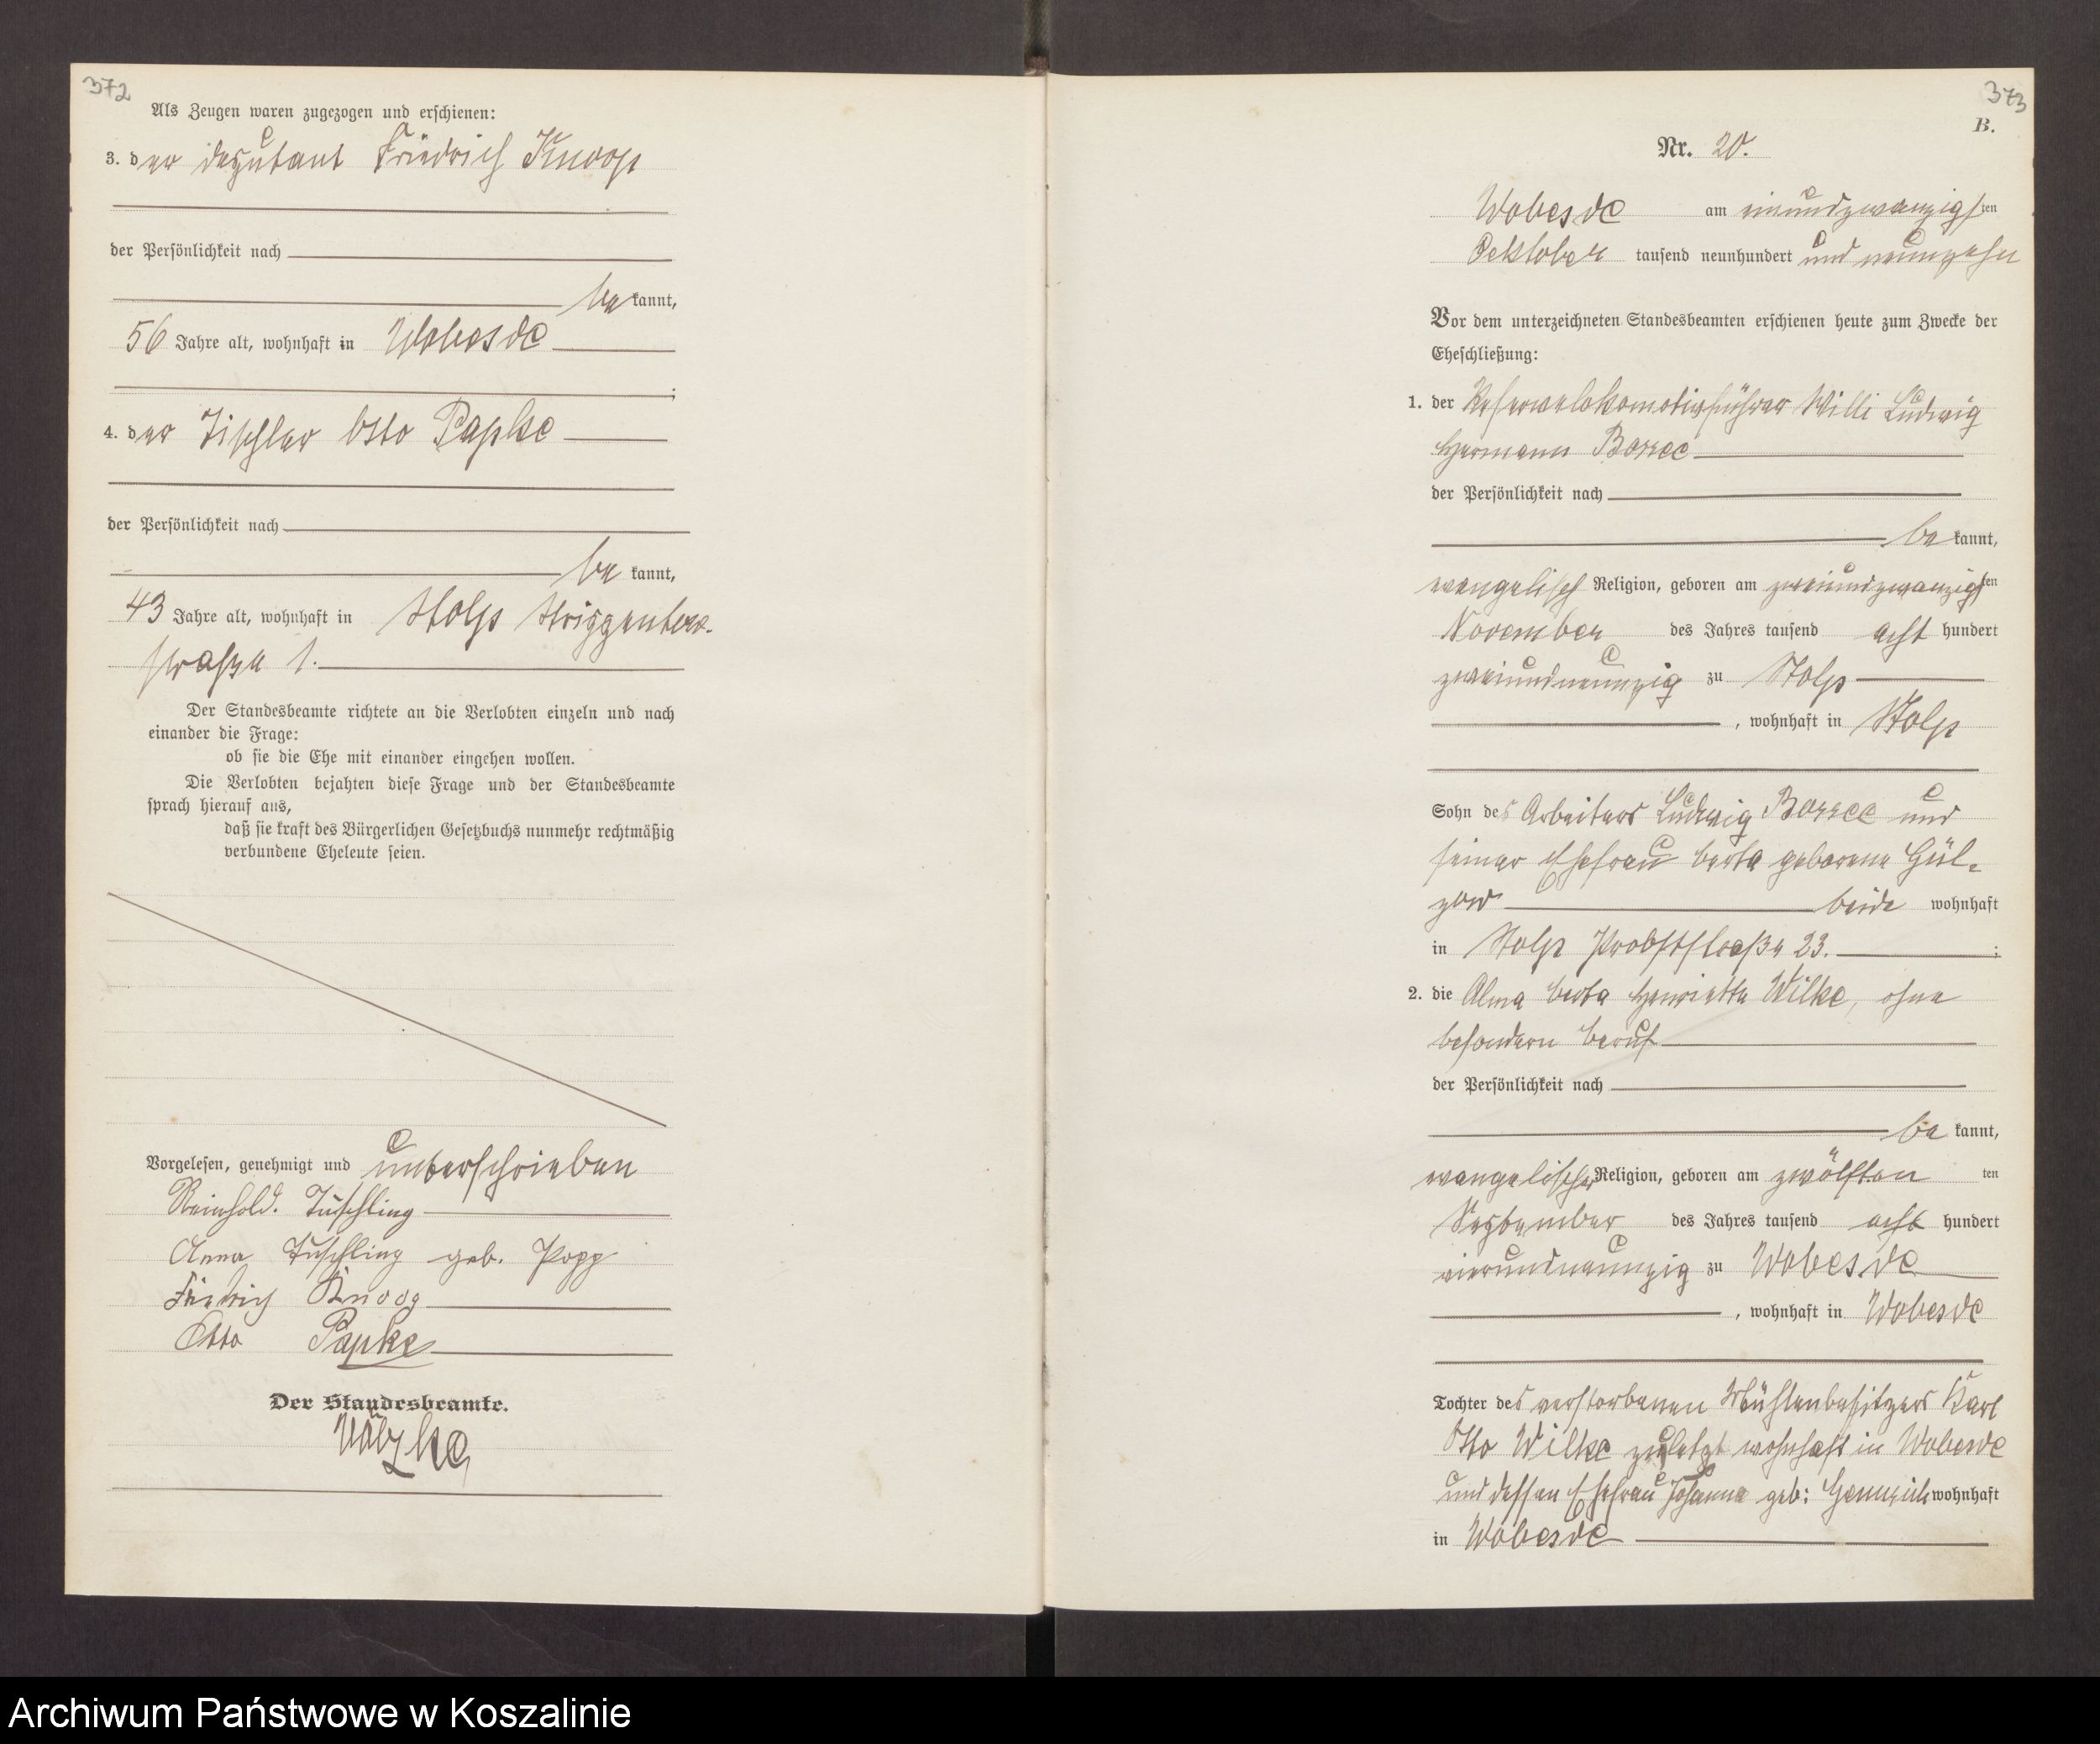 372
Als Zeugen waren zugezogen und erschienen:
3. der Deputant Friedrich Knoop
der Persönlichkeit nach
be kannt,
56 Jahre alt, wohnhaft in Wobesde
;
4. der Tischler Otto Papke
der Persönlichkeit nach
be kannt,
43 Jahre alt, wohnhaft in Stolp
straße 1.
Der Standesbeamte richtete an die Verlobten einzeln und nach
einander die Frage:
ob sie die Ehe mit einander eingehen wollen.
Die Verlobten bejahten diese Frage und der Standesbeamte
sprach hierauf aus,
daß sie kraft des Bürgerlichen Gesetzbuchs nunmehr rechtmäßig
verbundene Eheleute seien.
Vorgelesen, genehmigt und unterschrieben
Reinhold. Tuschling
Anna Tuschling geb. Popp
Friedrich Knoop
Otto Papke
Der Standesbeamte.
373
B.
Nr. 20.
Wobesde am einundzwanzigsten
Oektober tausend neunhundert und neunzehn
Vor dem unterzeichneten Standesbeamten erschienen heute zum Zwecke der
Eheschließung:
1. der Reservelokomotivführer Willi Ludwig
Hermann
der Persönlichkeit nach
be kannt,
evangelisch Religion, geboren am zweiundzwanzigsten
November des Jahres tausend acht hundert
zweiundneunzig zu Stolp
, wohnhaft in Stolp
Sohn des Arbeiters Ludwig und
seiner Ehefrau Berta geborene Gül-
zow beide wohnhaft
in Stolp Probststraße 23. ;
2. die Alma Berta Henriette Wilke, ohne
besondern Beruf
der Persönlichkeit nach
be kannt,
evangelischer Religion, geboren am zwölften ten
September des Jahres tausend acht hundert
vierundneunzig zu Wobesde
, wohnhaft in Wobesde
Tochter des verstorbenen Mühlenbesitzers Karl
Otto Wilke zuletzt wohnhaft in Wobesde
und dessen Ehefrau Johanna geb: wohnhaft
in Wobesde
Archiwum Państwowe w Koszalinie